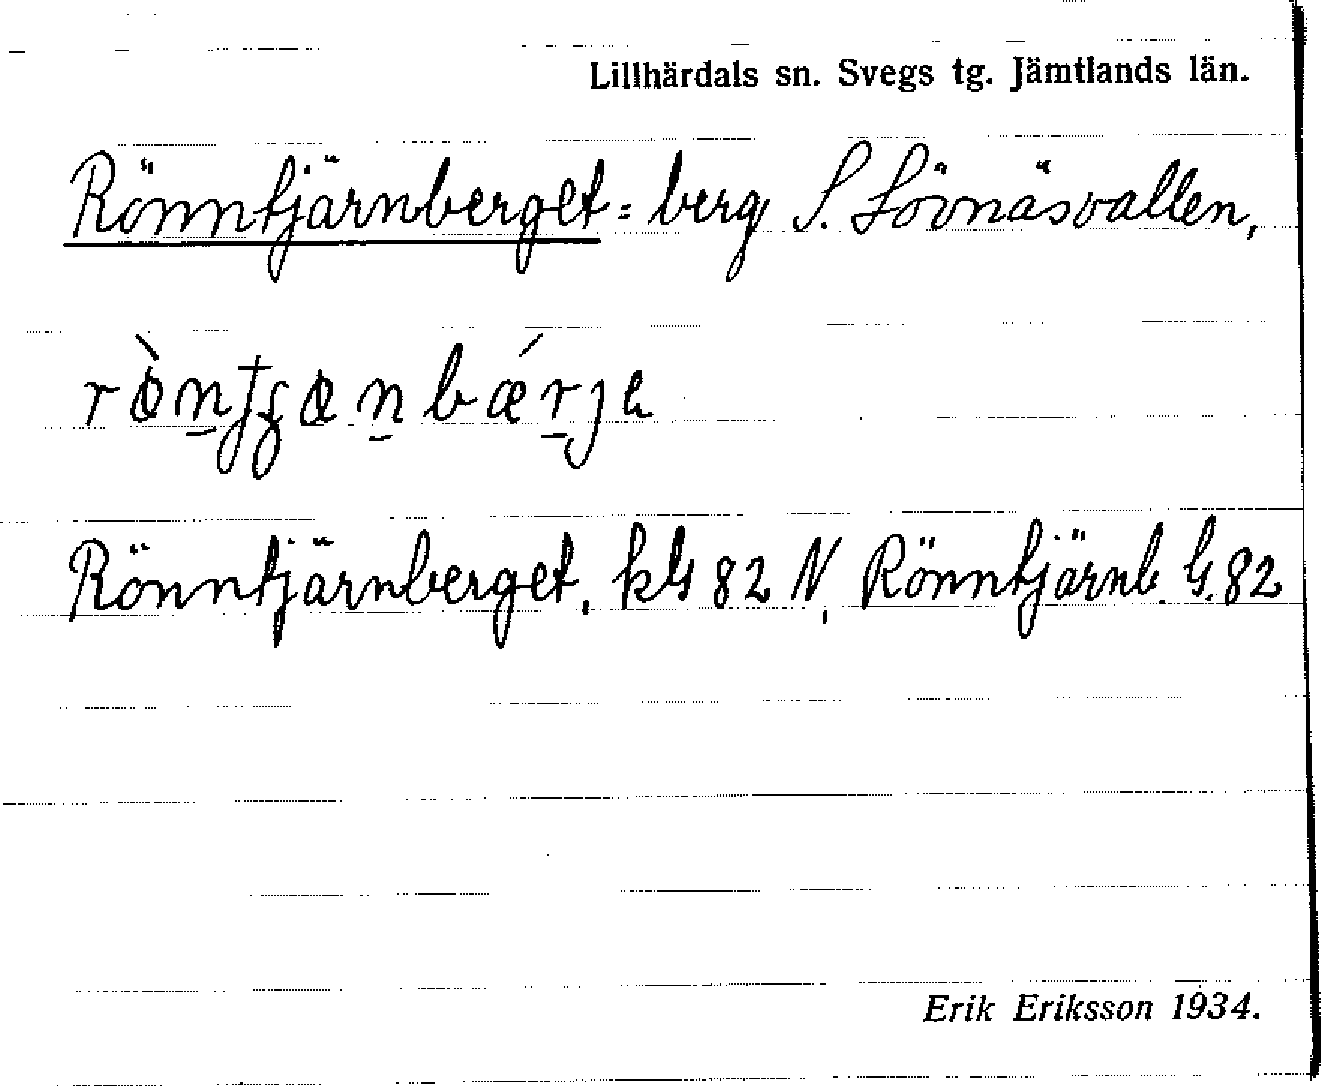 Lillhärdals sn. Svegs tg. Jämtlands län.
Rönntjärnberget = berg S. Lövnäsvallen,
Rönntjärnberget, 82 N, Rönntjärnb. G. 82
Erik Eriksson 1934.